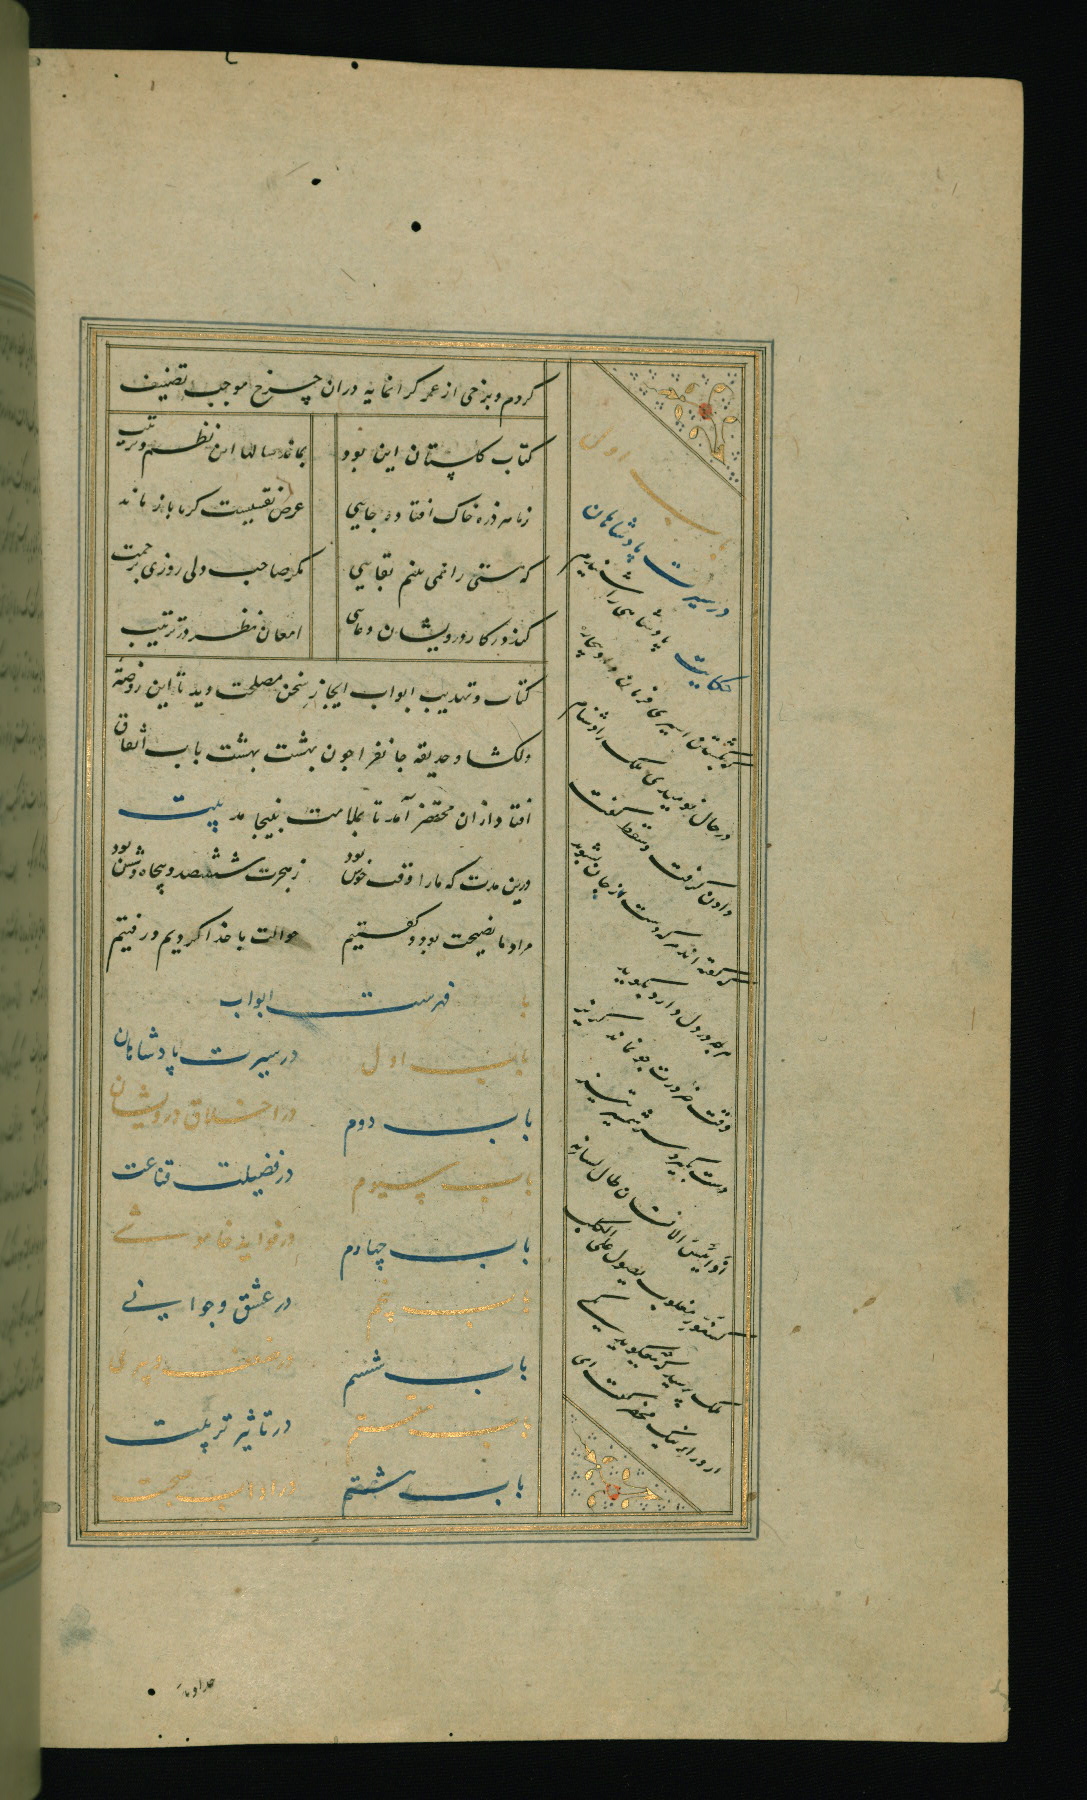 کردم و برخی از عمر گرانمایه در آن خرج موجب تصنیف
کتاب گلستان این بود
بماند سالها این نظم و ترتیب
ز ما هر ذره خاک افتاده جایی
غرض نقشیست کز ما باز ماند
که هستی را نمی بینم بقایی
مگر صاحب دلی روزی برحمت
کند در کار درویشان دعایی
امعان نظر در ترتیب
کتاب و تهذیب ابواب ایجاز سخن مصلحت دید تا این روضهٔ
دلکشا و حدیقه جانفزا چون بهشت بهشت باب اتفاق
افتاد از آن مختصر آمد تا بملامت نینجامد بیت
درین مدت که ما را وقت خوش بود
ز هجرت ششصد و پنجاه و شش بود
مراد ما نصیحت بود و گفتیم
حوالت با خدا کردیم و رفتیم
فهرست ابواب
باب اول
در سیرت پادشاهان
باب دوم
در اخلاق درویشان
باب سیوم
در فضیلت قناعت
باب چهارم
در فواید خاموشی
باب پنجم
در عشق و جوانی
باب ششم
در ضعف و پیری
باب هفتم
در تاثیر تربیت
باب هشتم
در آداب صحبت
باب اول
در سیرت پادشاهان
حکایت پادشاهی را شنیدم
که بکشتن اسیری فرمان داد بیچاره
در حال نومیدی ملک را دشنام
دادن گرفت و سقط گفت
که گفته اند هر که دست از جان بشوید
هر چه در دل دارد بگوید
وقت ضرورت چو نماند گریز
دست بگیرد سر شمشیر تیز
اذا یئس الانسان طال لسانه
کسنور مغلوب یصول علی الکلب
ملک پرسید که چه میگوید
یکی از وزرای نیک محضر گفت ای
خداوند